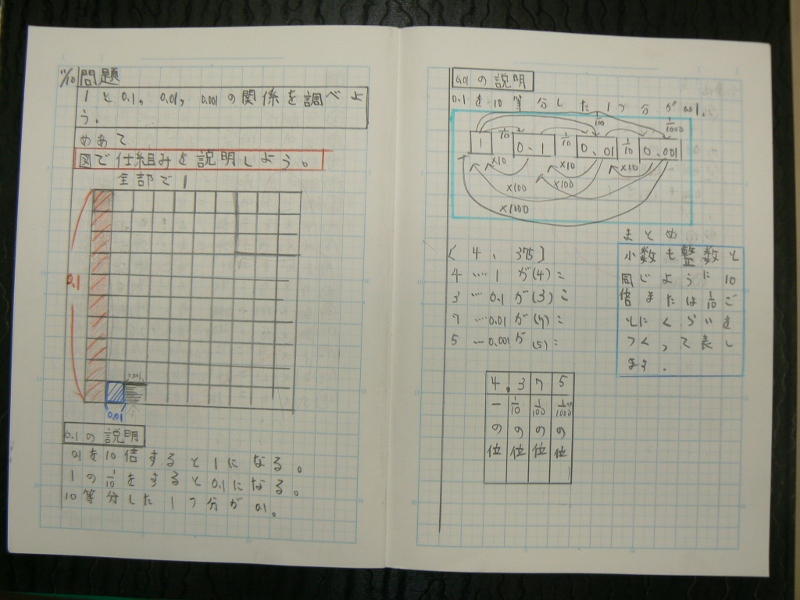 11/10 問題
1と0.1, 0.01, 0.001の関係を調べよ
う。
めあて
図で仕組みを説明しよう。
全部で1
0.1
0.001
0.01
0.1の説明
0.1を10倍すると1になる。
1の1/10をすると0.1になる。
10等分した1つ分が0.1。
0.01の説明
0.1を10等分した1つ分が0.01.
1/100 1/1000
1 1/10 0.1 1/10 0.01 1/10 0.001
×10 ×10 ×10
×100 ×100
×1000
[4.375]
4…1が(4)こ
3…0.1が(3)こ
7…0.01が(7)こ
5…0.001が(5)こ
まとめ
小数も整数と
同じように10
倍または1/10ご
とにくらいを
つくって表し
ます.
4.375
一の位
1/10の位
1/100の位
1/1000の位